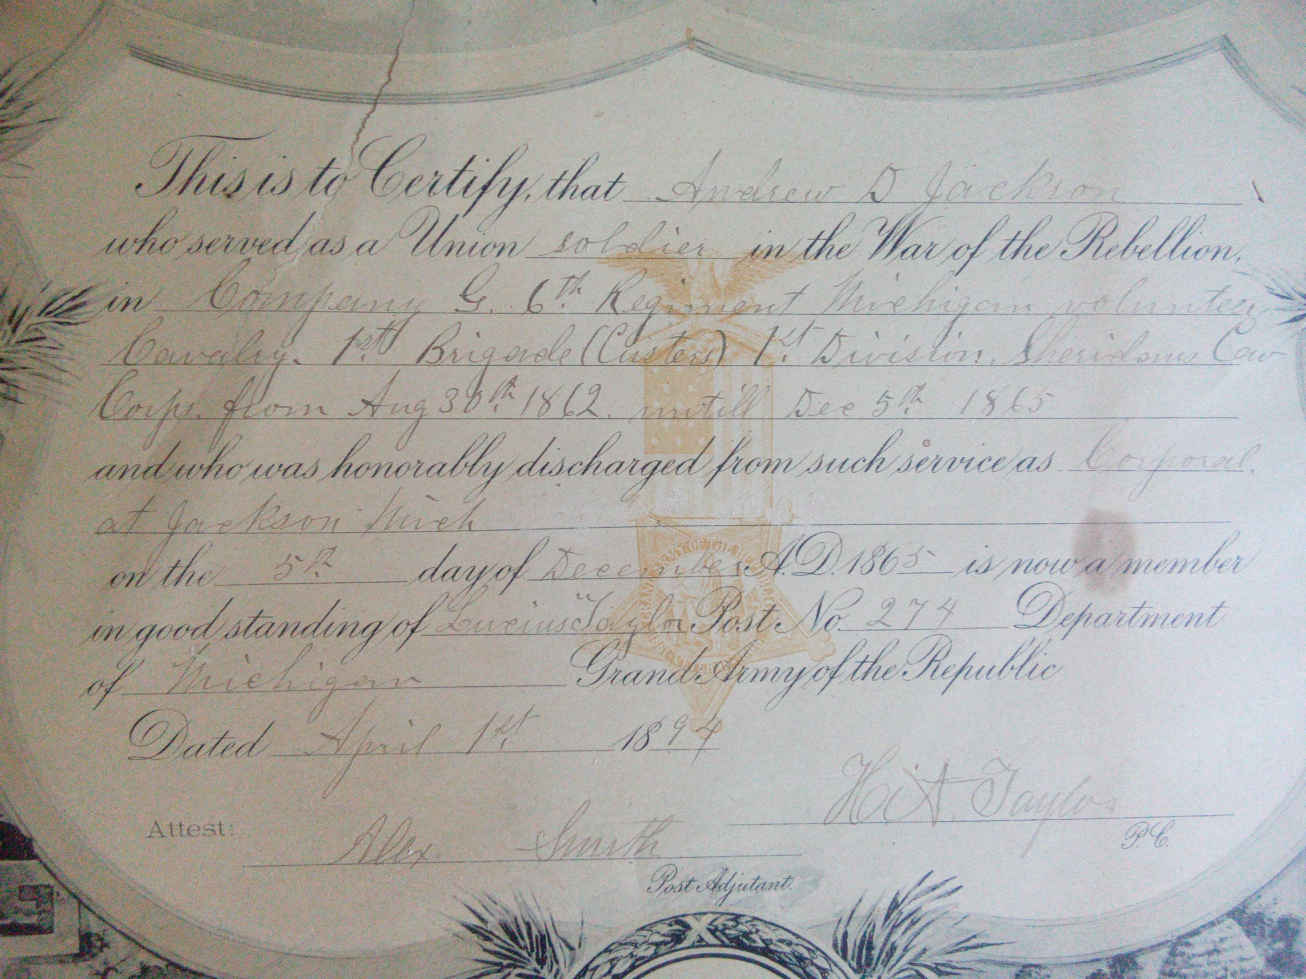 This is to Certify, that Andrew D Jackson
who served as a Union soldier in the War of the Rebellion,
in Company G. 6th Regiment Michigan volunteer
Cavalry. 1st Brigade (Custers) 1st Division. Sheridans Cav
Corps. from Aug 30th 1862. untill Dec 5th 1865
and who was honorably discharged from such service as Corporal.
at Jackson Mich
on the 5th day of December A.D. 1865 is now a member
in good standing of Lucius Taylor Post No. 274 Department
of Michigan Grand Army of the Republic
Dated April 1st 1894
H. A. Taylor
P.C.
Attest: Alex. Smith
Post Adjutant.